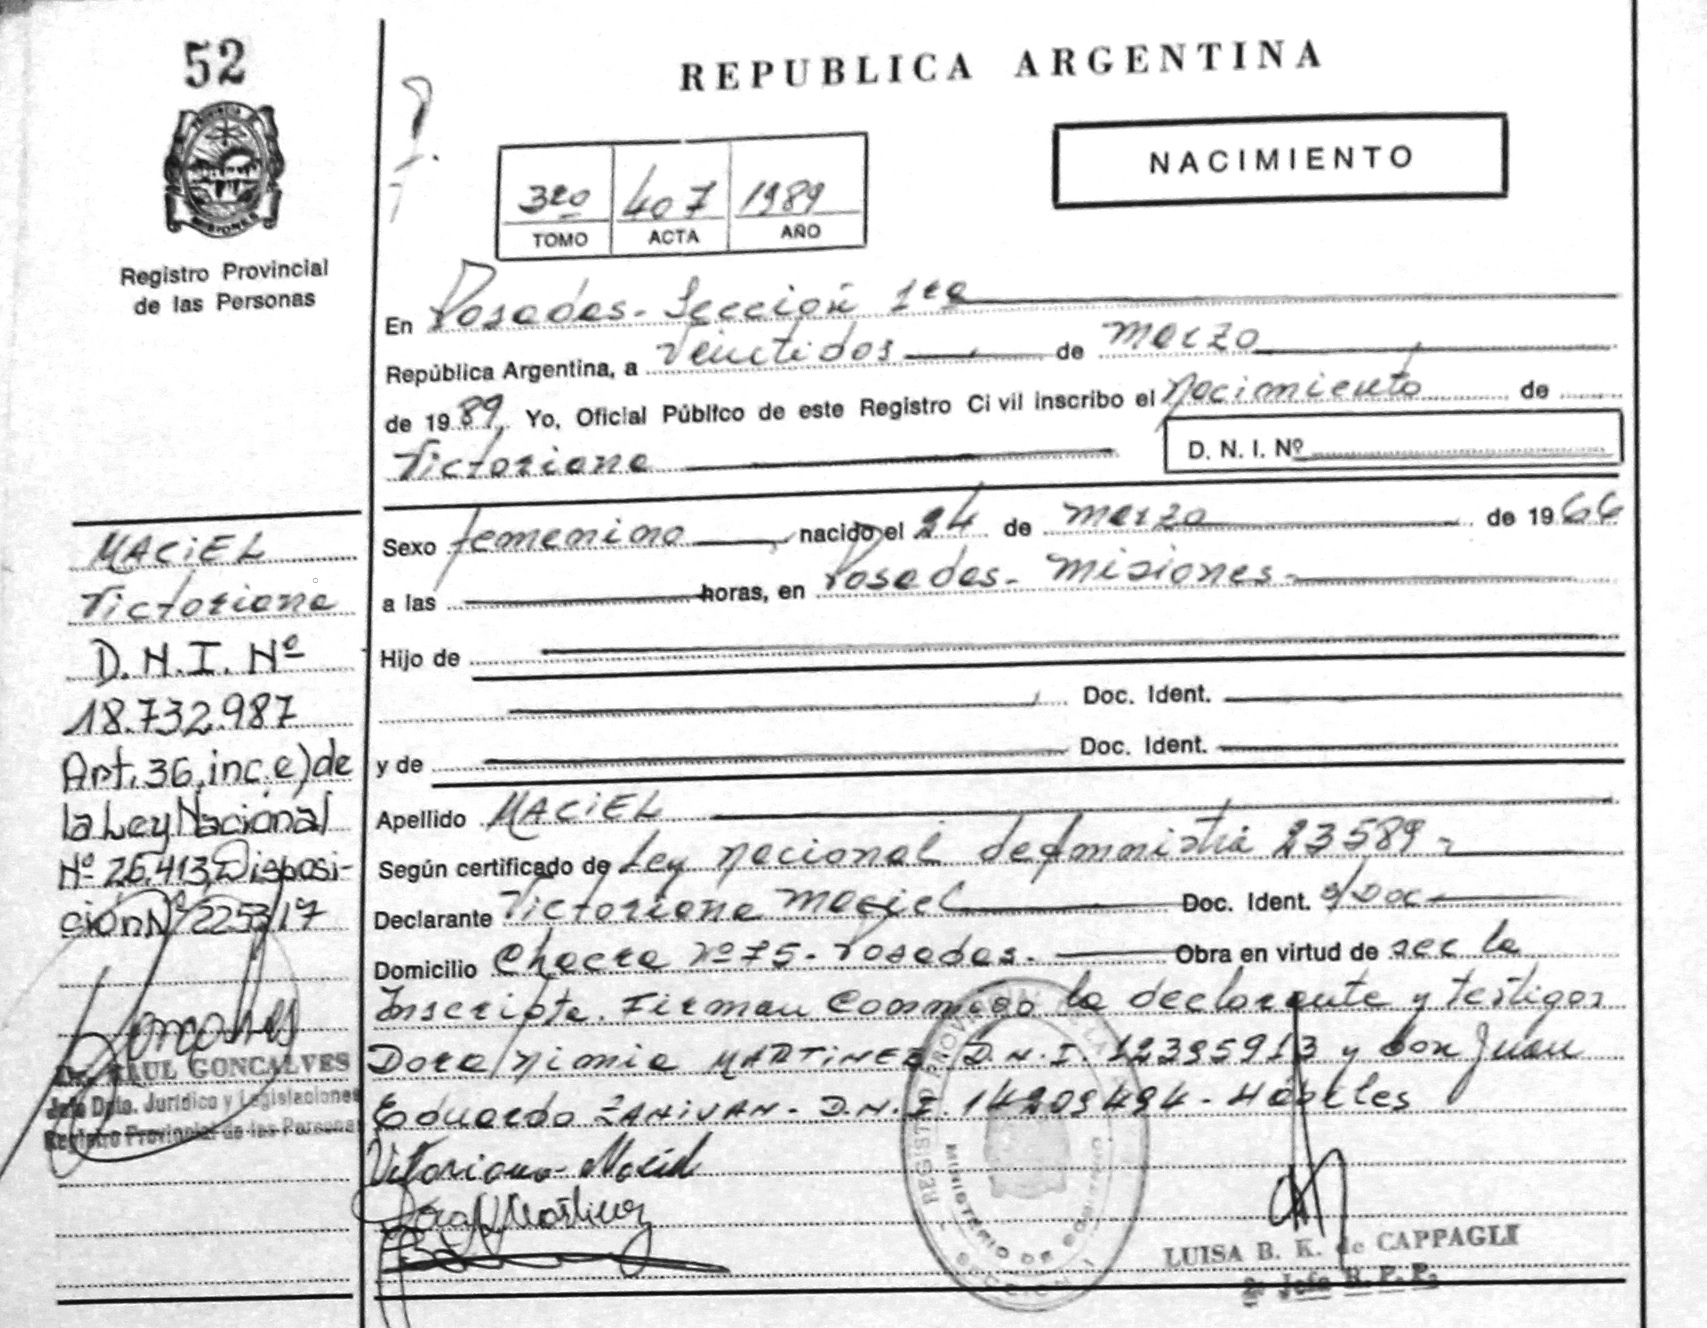 52
REPUBLICA ARGENTINA
NACIMIENTO
3ro 407 1989
TOMO ACTA AÑO
PROVINCIA DE MISIONES
Registro Provincial
de las Personas
En Posadas - Sección 1ra
República Argentina, a Veintidos de marzo
de 1989, Yo, Oficial Público de este Registro Civil inscribo el Nacimiento de
Victoriana D. N. I. Nº
Sexo femenino nacido el 24 de marzo de 1966
a las horas, en Posadas - Misiones -
Hijo de
Doc. Ident.
y de Doc. Ident.
Apellido MACIEL
Según certificado de Ley nacional de Amnistia 23589 -
Declarante Victoriana Maciel Doc. Ident. s/Doc
Domicilio Chacra Nº 75 - Posadas. Obra en virtud de ser la
Inscripta. Firman Conmigo la declarante y testigos
Dora Nimia MARTINEZ D.N.I. 12395913 y don Juan
Eduardo ZANIVAN - D.N.I. 14209494 - Habiles
Vitoriana Maciel
Dora N Martinez
LUISA B. K. de CAPPAGLI
2ª Jefa R. P. P.
REGISTRO PROVINCIAL DE LAS
MINISTERIO DE GOBIERNO
SECCION 1
MACIEL
Victoriana
D.N.I. Nº
18.732.987
Art. 36, inc. e) de
la Ley Nacional
Nº 26.413, Disposi-
ción Nº 2253/17
Dr. RAUL GONCALVES
Jefe Dpto. Jurídico y Legislaciones
Registro Provincial de las Personas